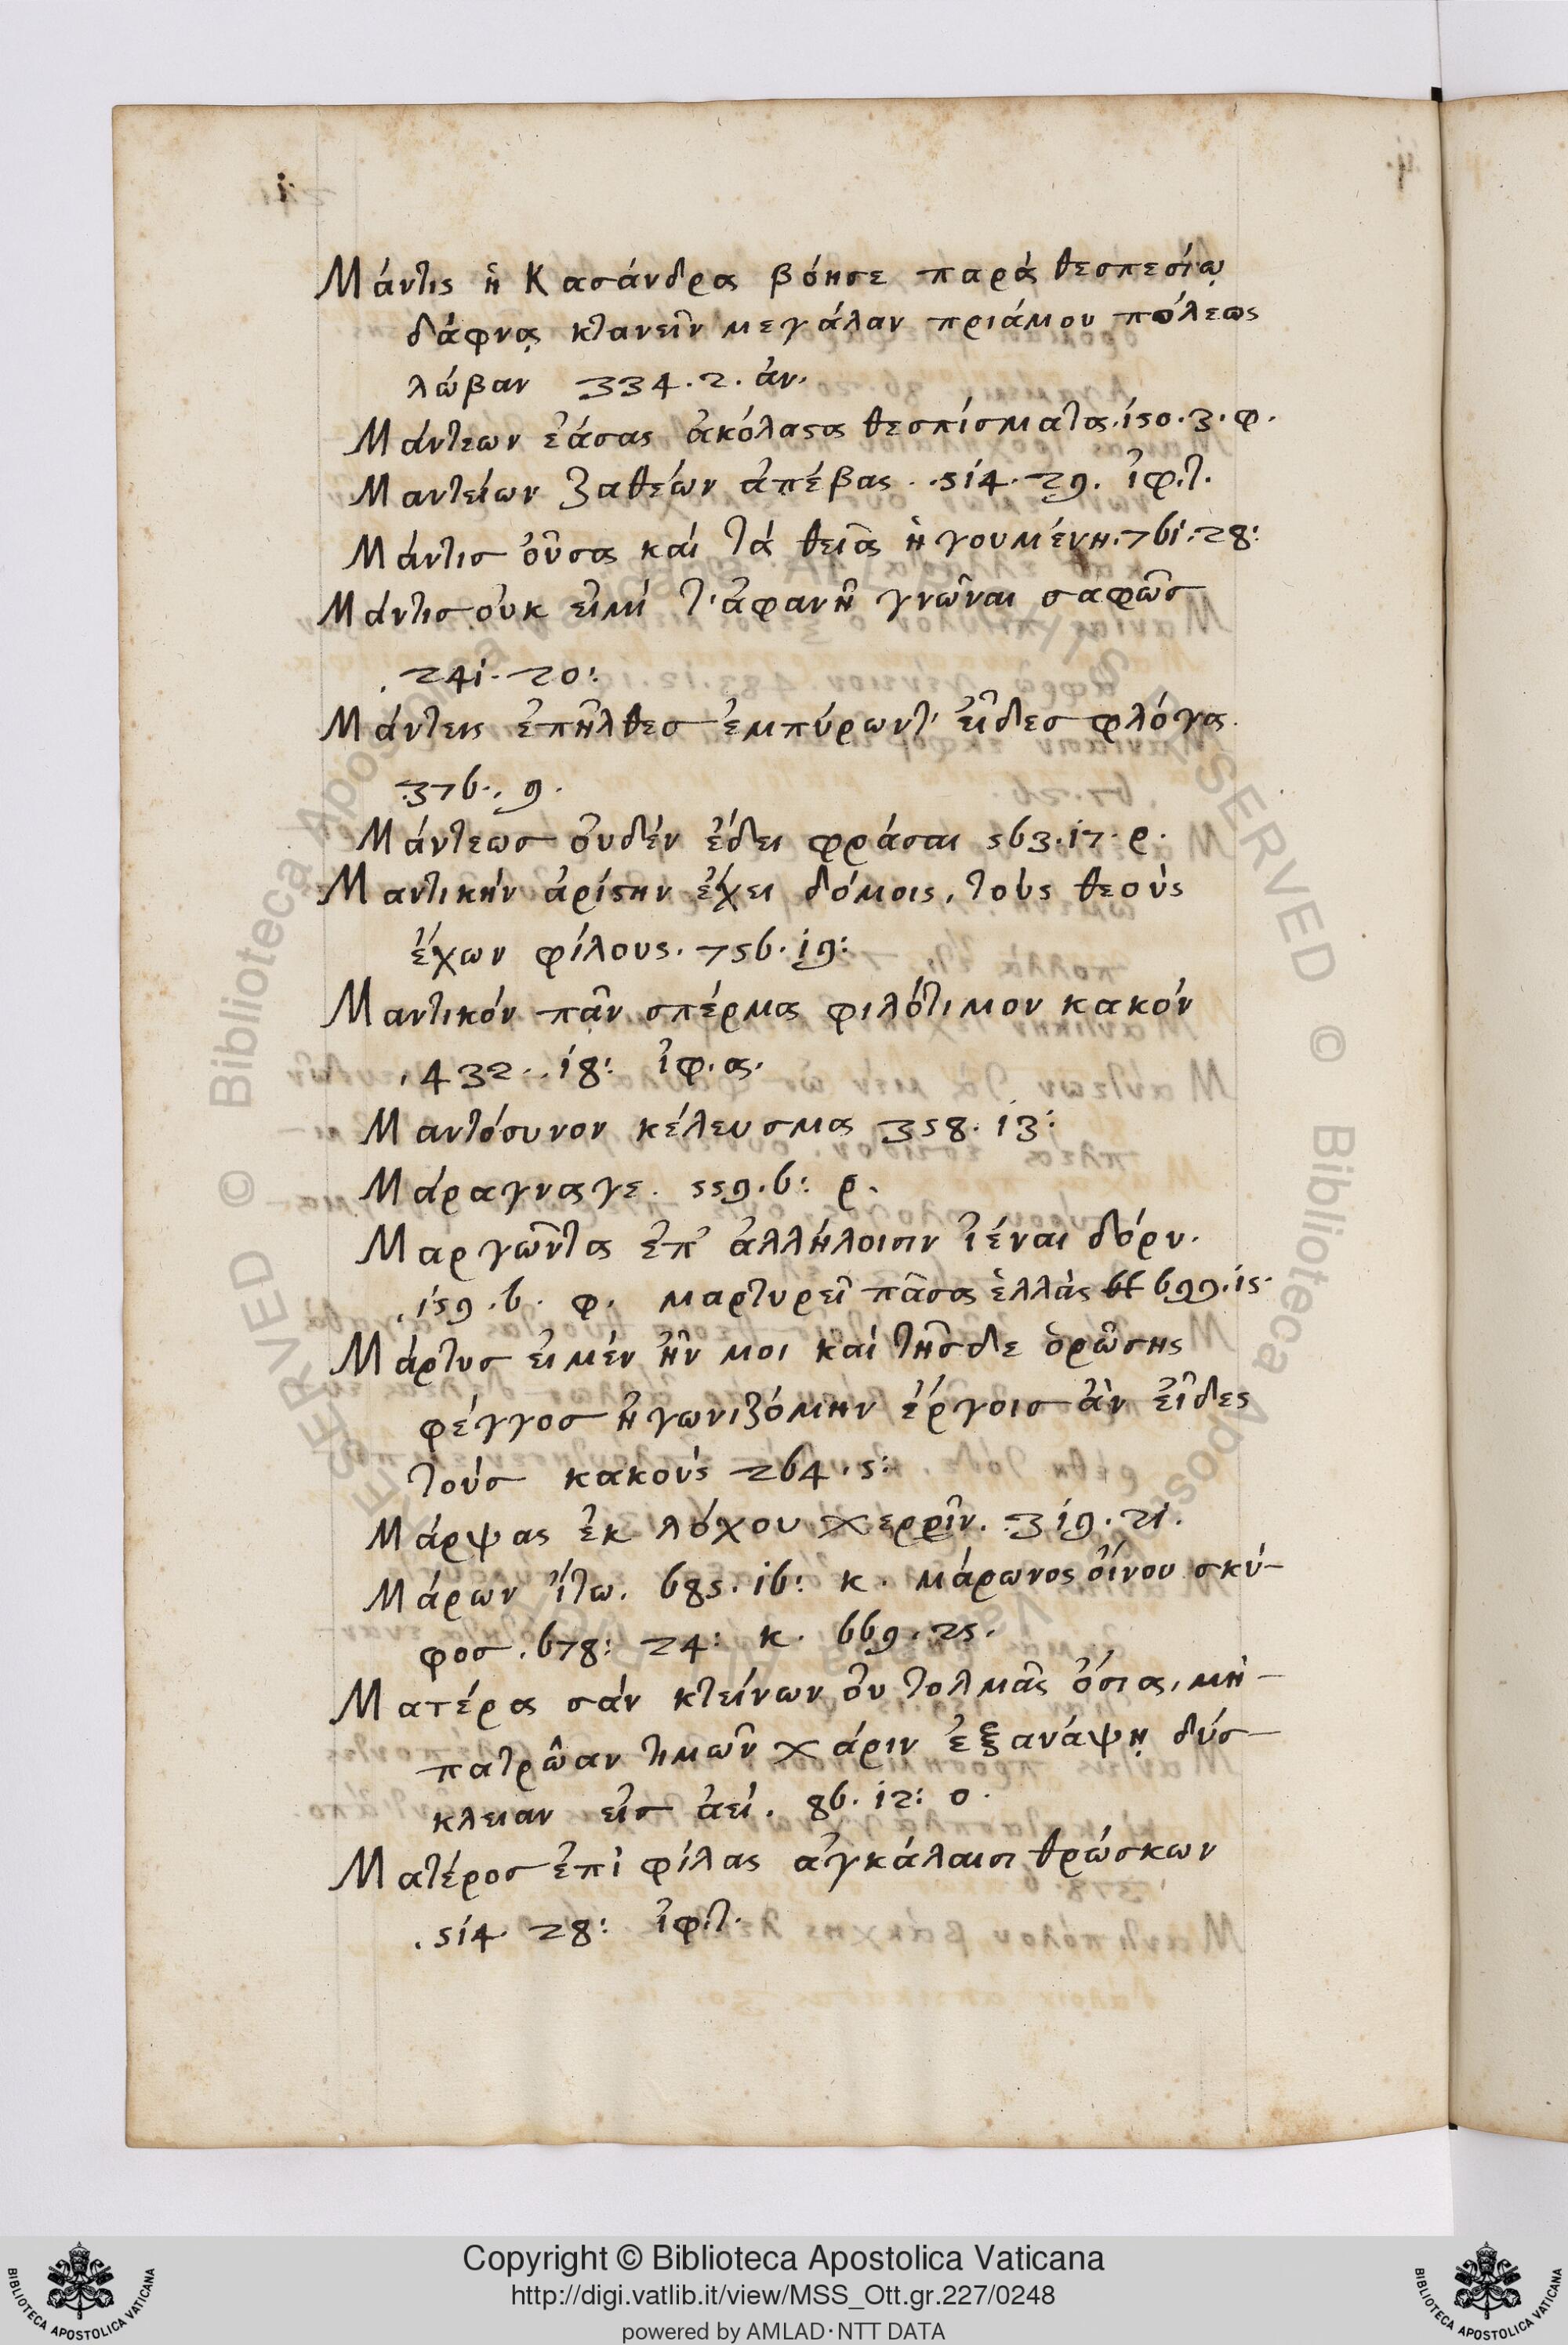 Μάντις ἡ Κασάνδρα βόησε παρὰ θεσπεσίῳ
δάφνᾳ κτανεῖν μεγάλαν πριάμου πόλεως
λώβαν 334.2. ἀν.
Μάντεων ἐάσας ἀκόλαϛα θεσπίσματα. 150.3. φ.
Μαντείων ζαθέων ἀπέβας. .514.29. ἰφ.τ.
Μάντισ οὖσα καὶ τὰ θεῖα ἡγουμένη. 761.28:
Μάντισ οὐκ εἰμί τ' ἀφανῆ γνῶναι σαφῶσ
.241.20:
Μάντεις ἐπῆλθεσ ἐμπύρων τ' εἶδεσ φλόγα.
376., 9.
Μάντεωσ οὐδέν ἔδει φράσαι 563.17. ρ.
Μαντικήν ἀρίϛην ἔχει δόμοις, τοὺς θεοὺς
ἔχων φίλους. 756.19:
Μαντικόν πᾶν σπέρμα φιλότιμον κακόν
,432..18: ἰφ.α.
Μαντόσυνον κέλευσμα 358.13:
Μάραγνα γε. 559.6: ρ.
Μαργῶντα ἐπ' ἀλλήλοισιν ἰέναι δόρυ.
.159.6. φ. μαρτυρεῖ πᾶσα ἑλλὰς 699.15.
Μάρτυσ εἰ μέν ἦν μοι καί τῆσδε ὁρώσης
φέγγοσ ἠγωνιζόμην ἔργοισ ἂν εἶδες
τούσ κακοὺς 264.5:
Μάρψας ἐκ λόχου χερρῖν. 319.21.
Μάρων ἴτω. 685.16: κ. μάρωνος οἴνου σκύ-
φοσ. 678: 24: κ. 669.25.
Ματέρα σάν κτείνων οὐ τολμᾶς ὅσια, μὴ-
πατρῴαν τιμῶν χάριν ἐξανάψῃ δύσ-
κλειαν εἰσ ἀεί. 86.12: ο.
Ματέροσ ἐπὶ φίλας ἀγκάλαισι θρώσκων
.514. 28: ἰφ.τ.
Copyright © Biblioteca Apostolica Vaticana
http://digi.vatlib.it/view/MSS_Ott.gr.227/0248
powered by AMLAD·NTT DATA